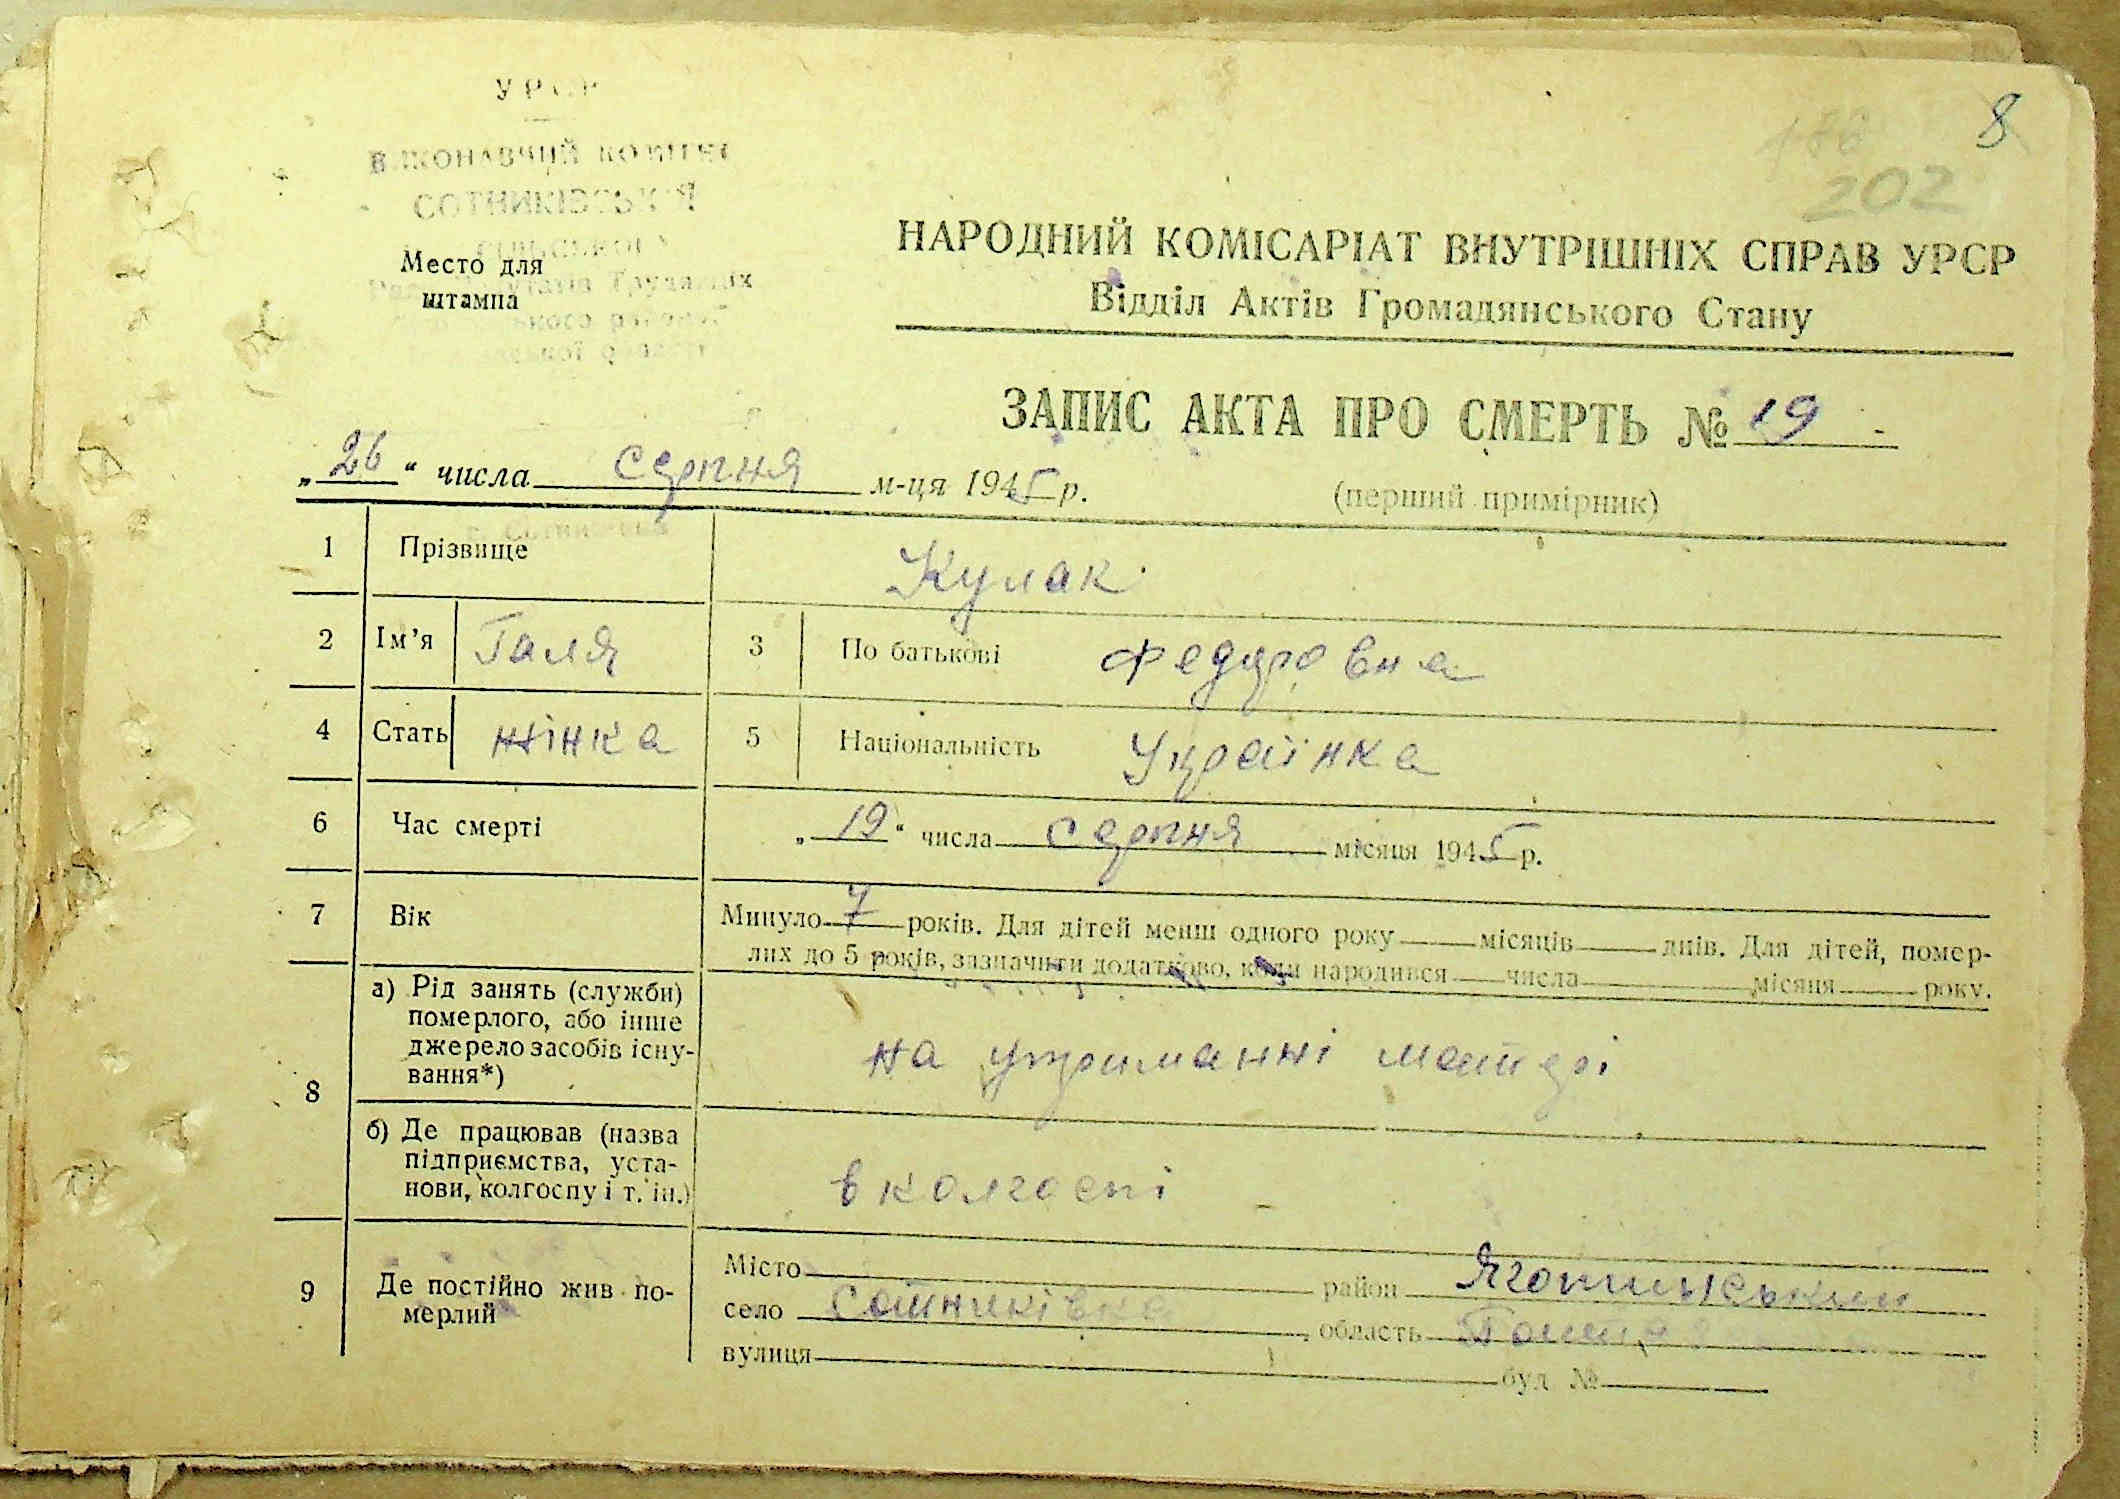 УРСР
ВИКОНАВЧИЙ КОМІТЕТ
СОТНИКІВСЬКОЇ
СІЛЬСЬКОГО
Место для
штампа
8
202
НАРОДНИЙ КОМІСАРІАТ ВНУТРІШНІХ СПРАВ УРСР
Відділ Актів Громадянського Стану
ЗАПИС АКТА ПРО СМЕРТЬ № 19
„26“ числа серпня м-ця 1945 р.
(перший примірник)
1 Прізвище Кулак
2 Ім’я Галя 3 По батькові Федоровна
4 Стать жінка 5 Національність Українка
6 Час смерті „19“ числа серпня місяця 1945 р.
7 Вік Минуло 7 років. Для дітей менш одного року місяців днів. Для дітей, помер-
лих до 5 років, зазначити додатково, коли народився числа місяця року.
8 а) Рід занять (служби)
померлого, або інше
джерело засобів існу-
вання*)
на утриманні матері
б) Де працював (назва
підприємства, уста-
нови, колгоспу і т. ін.)
в колгоспі
9 Де постійно жив по-
мерлий
Місто район Яготинський
село Сотниківка, область Полтав
вулиця буд №